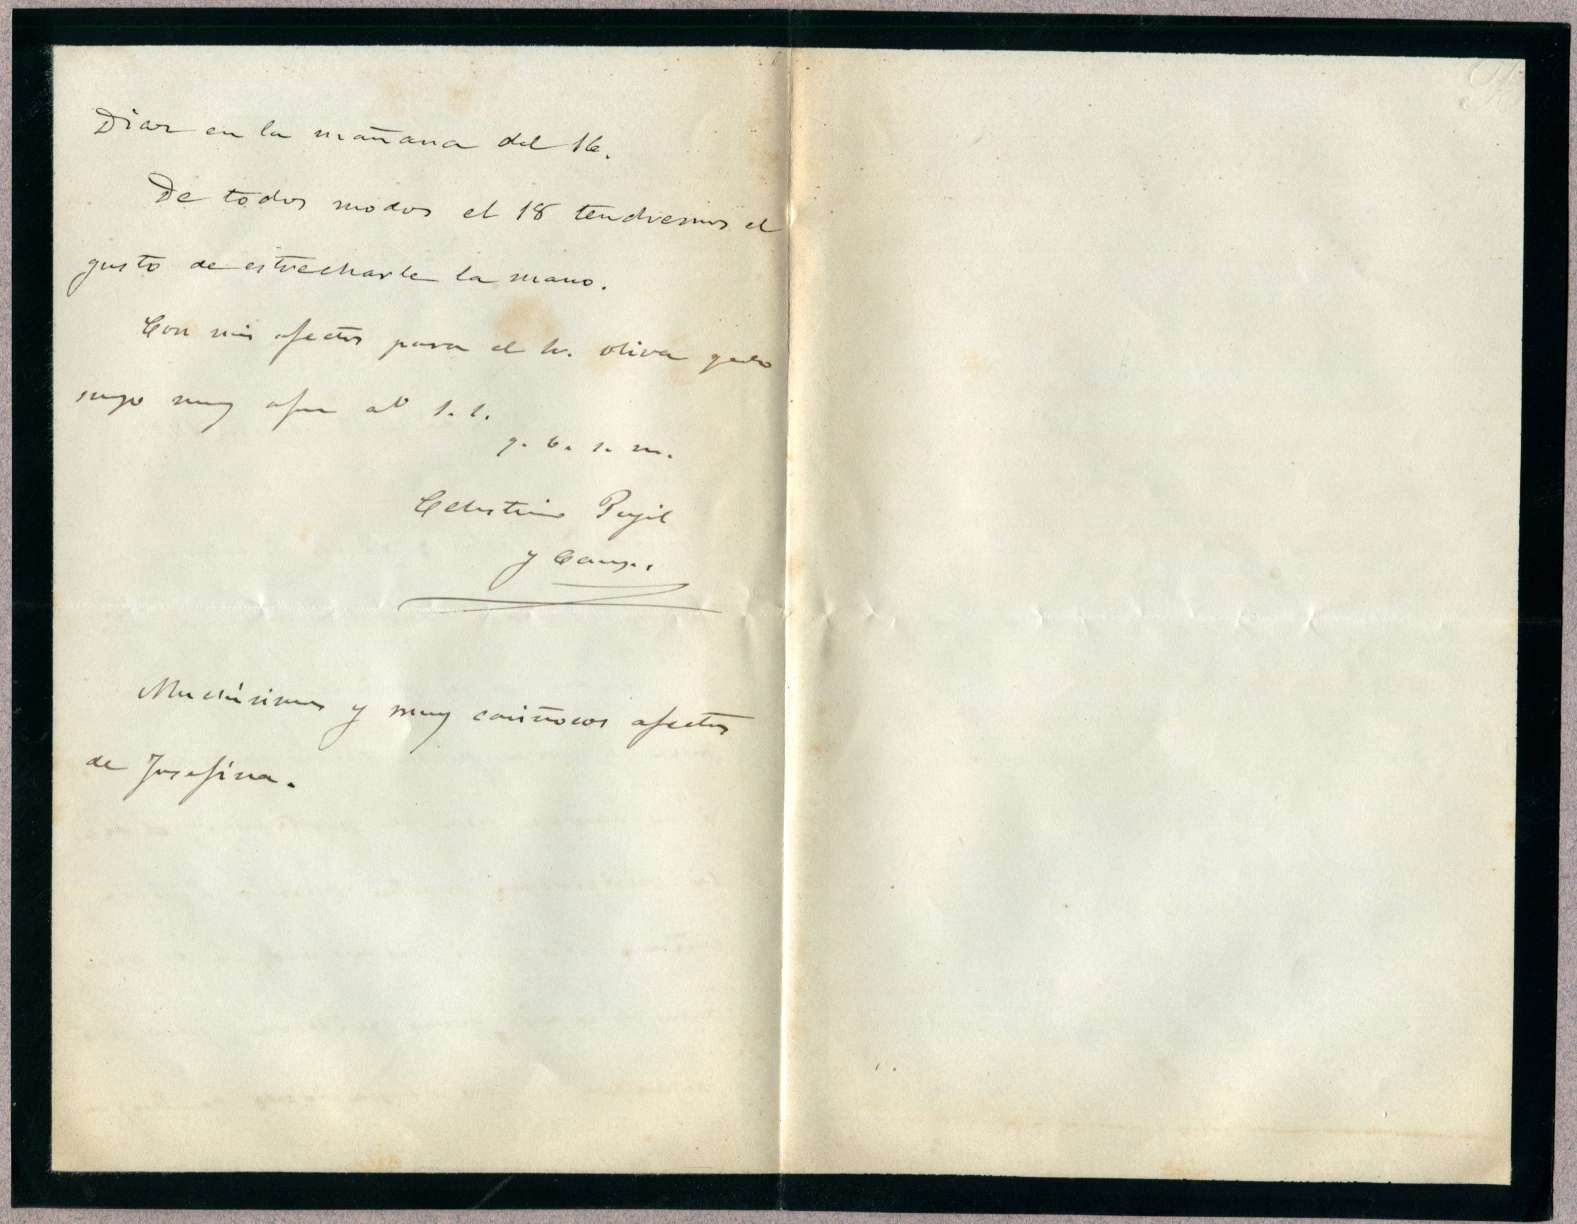 Diaz en la mañana del 16.
De todos modos el 18 tendremos el
gusto de estrecharle la mano.
Con mis afectos para el Sr. Oliva qedo
suyo muy afmo s. s.
q. b. s. m.
Celestino Pujol
y Camps.
Muchísimos y muy cariñosos afectos
de Josefina.